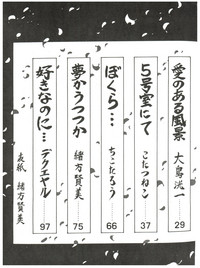 愛のある風景 大島洸一 29
5号室にて こたつねこ 37
ぼくら… ちこたろう 66
夢かうつつか 緒方賢美 75
好きなのに… デクエヤル 97
表紙 緒方賢美